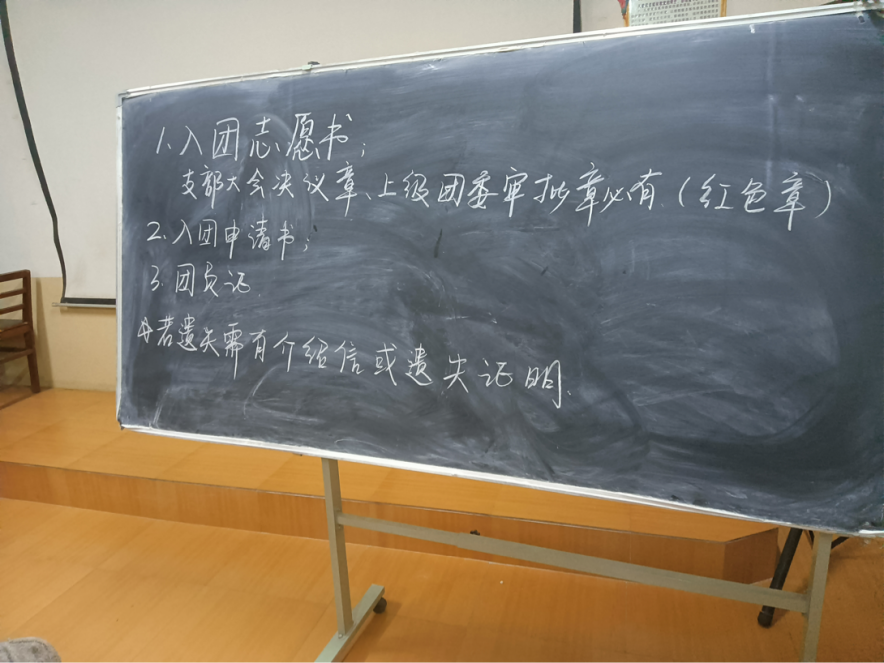 1.入团志愿书;
支部大会决议章、上级团委审批章必有(红色章)
2.入团申请书;
3.团员证.
若遗失需有介绍信或遗失证明.